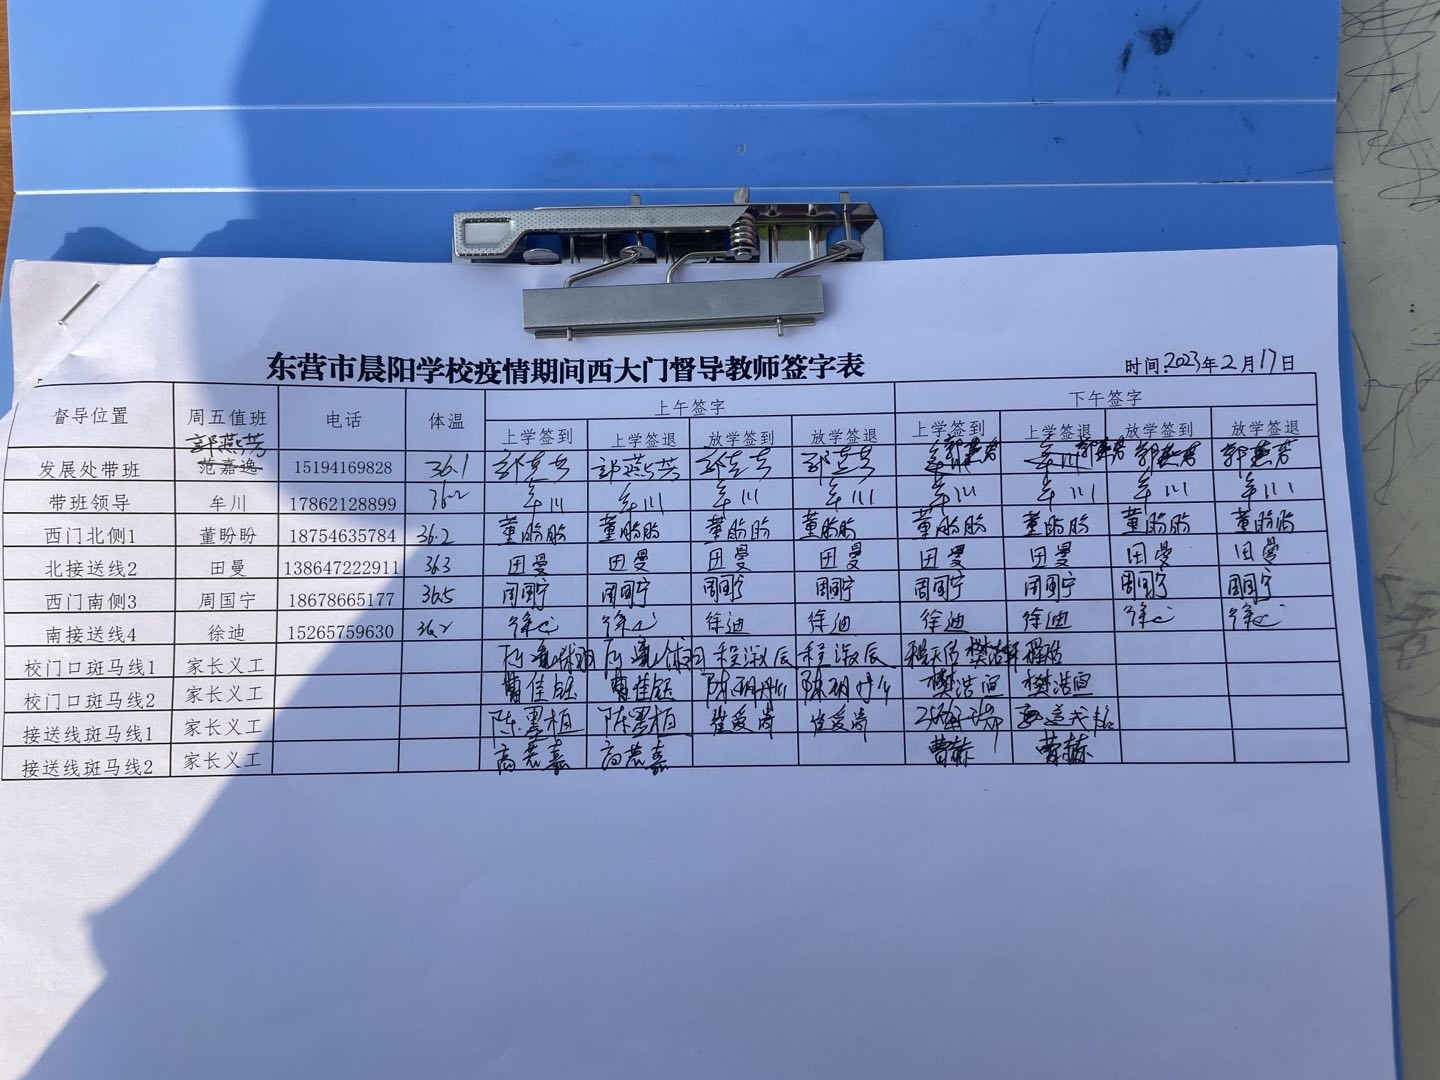 东营市晨阳学校疫情期间西大门督导教师签字表
时间:2023年2月17日
督导位置 周五值班 电话 体温 上午签字 下午签字
上学签到 上学签退 放学签到 放学签退 上学签到 上学签退 放学签到 放学签退
郭燕芳
发展处带班 范嘉逸 15194169828 36.1 郭燕芳 郭燕芳 郭燕芳 郭燕芳 牟川 郭燕芳 牟川 郭燕芳 郭燕芳 郭燕芳
带班领导 牟川 17862128899 36.2 牟川 牟川 牟川 牟川 牟川 牟川 牟川 牟川
西门北侧1 董盼盼 18754635784 36.2 董盼盼 董盼盼 董盼盼 董盼盼 董盼盼 董盼盼 董盼盼 董盼盼
北接送线2 田曼 138647222911 363 田曼 田曼 田曼 田曼 田曼 田曼 田曼 田曼
西门南侧3 周国宁 18678665177 36.5 周国宁 周国宁 周国宁 周国宁 周国宁 周国宁 周国宁 周国宁
南接送线4 徐迪 15265759630 36.2 徐迪 徐迪 徐迪 徐迪 徐迪 徐迪 徐迪 徐迪
校门口斑马线1 家长义工 程淑辰 程淑辰
校门口斑马线2 家长义工 曹佳钰 曹佳钰 樊浩宣 樊浩宣
接送线斑马线1 家长义工 陈墨柏 陈墨柏
接送线斑马线2 家长义工 高若嘉 高若嘉 曹赫 曹赫